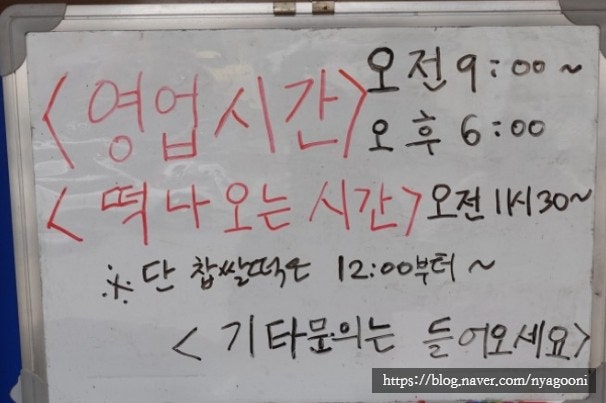 <영업시간> 오전 9:00~
오후 6:00
<떡 나오는 시간> 오전 11시30~
※ 단 찹쌀떡은 12:00부터~
<기타문의는 들어오세요>
https://blog.naver.com/nyagooni